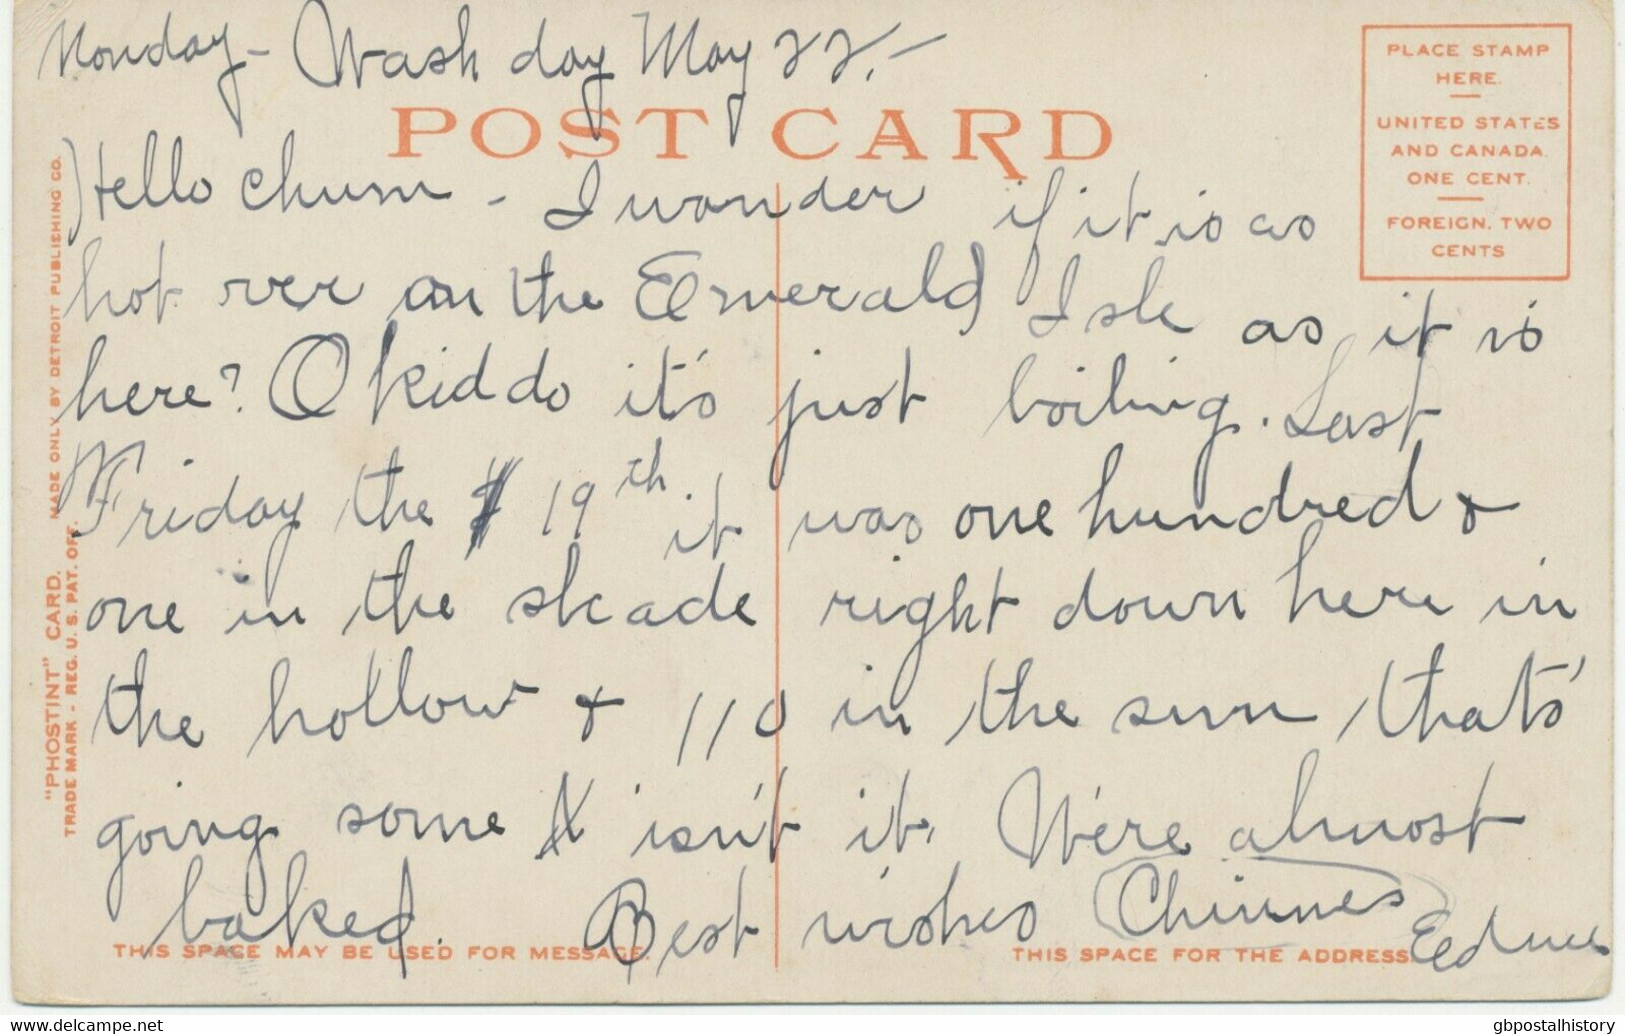 Monday - Wash day May 22. -
POST CARD
PLACE STAMP
HERE.
UNITED STATES
AND CANADA.
ONE CENT.
FOREIGN, TWO
CENTS
Hello Chum - I wonder if it is as
hot over on the Emerald Isle as it is
here? O kiddo it's just boiling. Last
Friday the 19th it was one hundred &
one in the shade right down here in
the hollow & 110 in the sun that's
going some isn't it. We're almost
baked. Best wishes
"PHOSTINT" CARD. MADE ONLY BY DETROIT PUBLISHING CO.
TRADE MARK - REG. U. S. PAT. OFF.
THIS SPACE MAY BE USED FOR MESSAGE.
THIS SPACE FOR THE ADDRESS
www.delcampe.net
gbpostalhistory